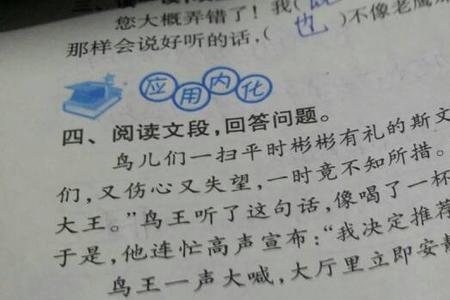 您大概弄错了！我(
也)不像老鹰
那样会说好听的话,(
应用内化
四、阅读文段,回答问题。
鸟儿们一扫平时彬彬有礼的斯文
们,又伤心又失望,一时竟不知所措。
大王。”鸟王听了这句话,像喝了一杯
于是,他连忙高声宣布:“我决定推荐
鸟王一声大喊,大厅里立即安